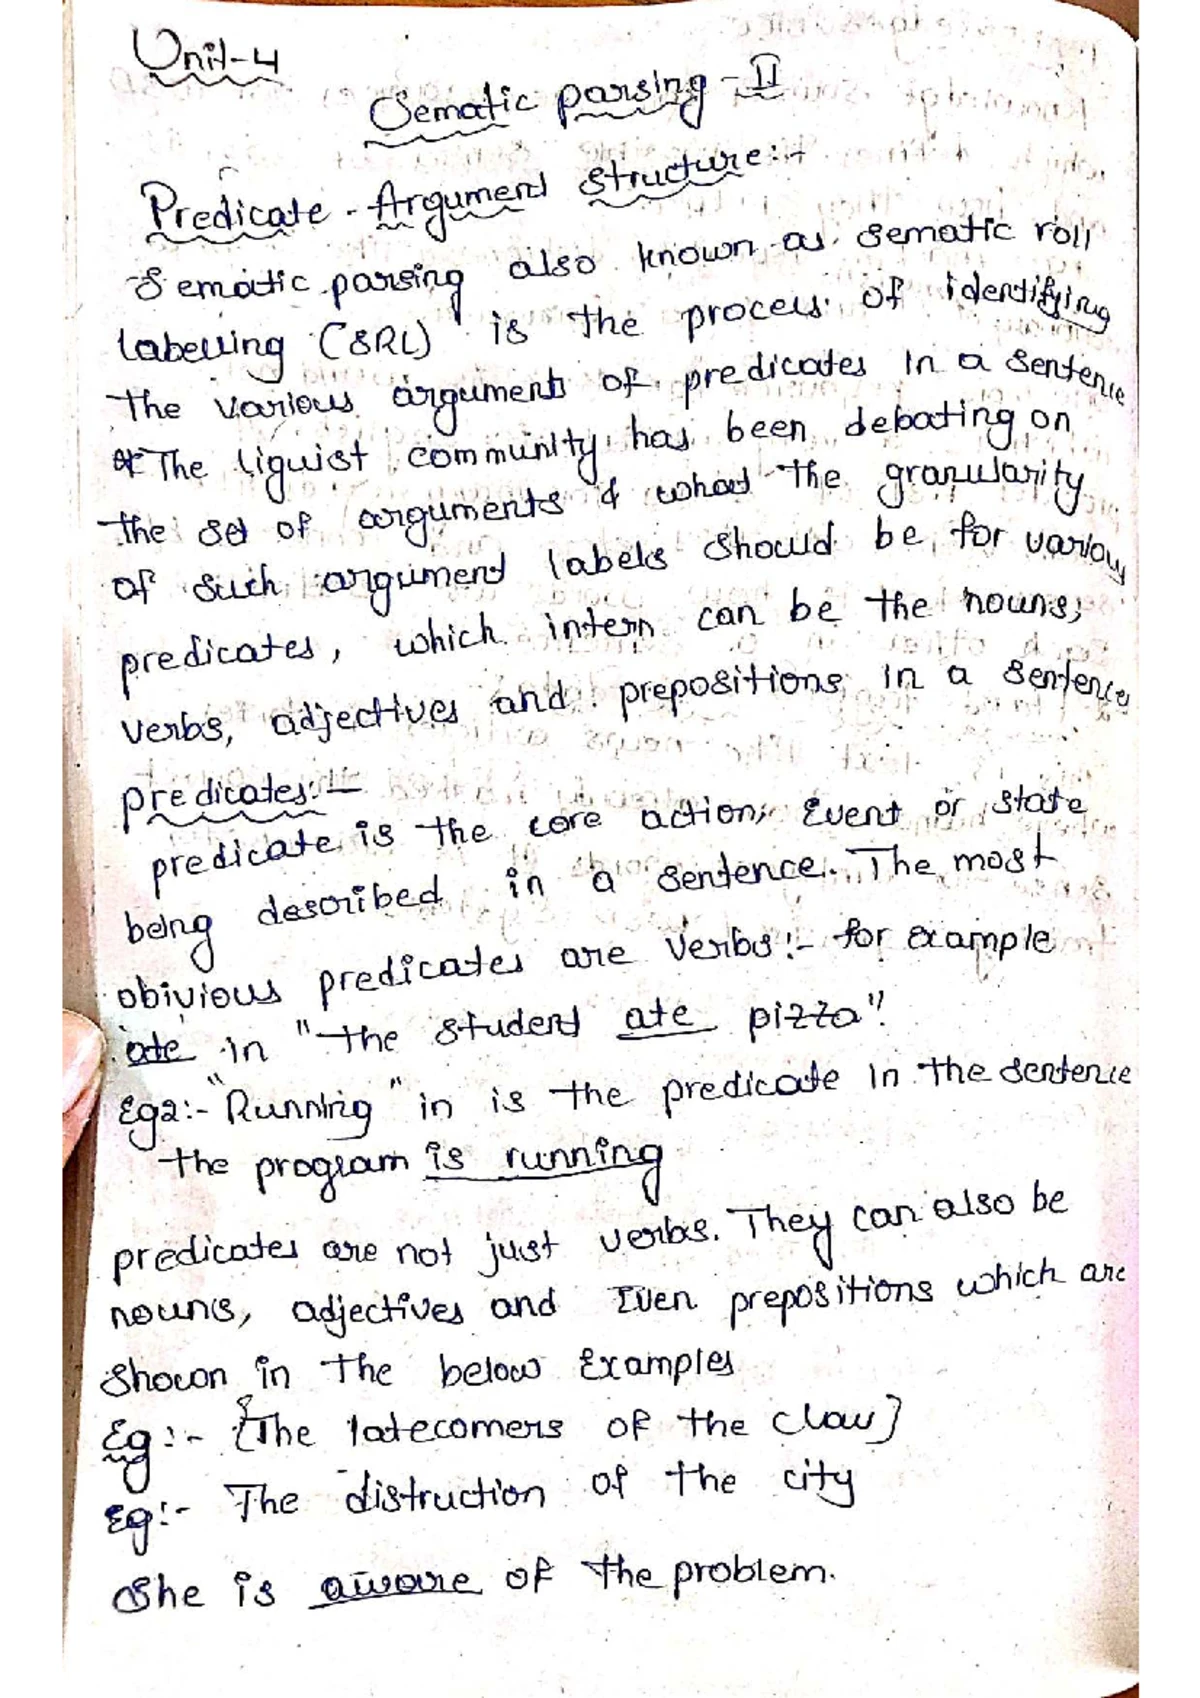 Unit-4
Sematic parsing - II
Predicate - Argument structure:-
Sematic parsing also known as sematic roll
labelling (SRL) is the process of identifying
the various arguments of predicates in a sentence
The liguist community has been debating on
the set of arguments & what the granularity
of such argument labels should be for various
predicates, which intern can be the nouns,
verbs, adjectives and prepositions in a sentence
predicates:-
predicate is the core action, Event or state
being described in a sentence. The most
obivious predicates are verbs:- for example
'ate' in "the student ate pizza".
Eg2:- "Running" in is the predicate in the sentence
the program is running
predicates are not just verbs. They can also be
nouns, adjectives and Even prepositions which are
shown in the below Examples
Eg:- {The latecomers of the claw}
Eg:- The distruction of the city
She is aware of the problem.